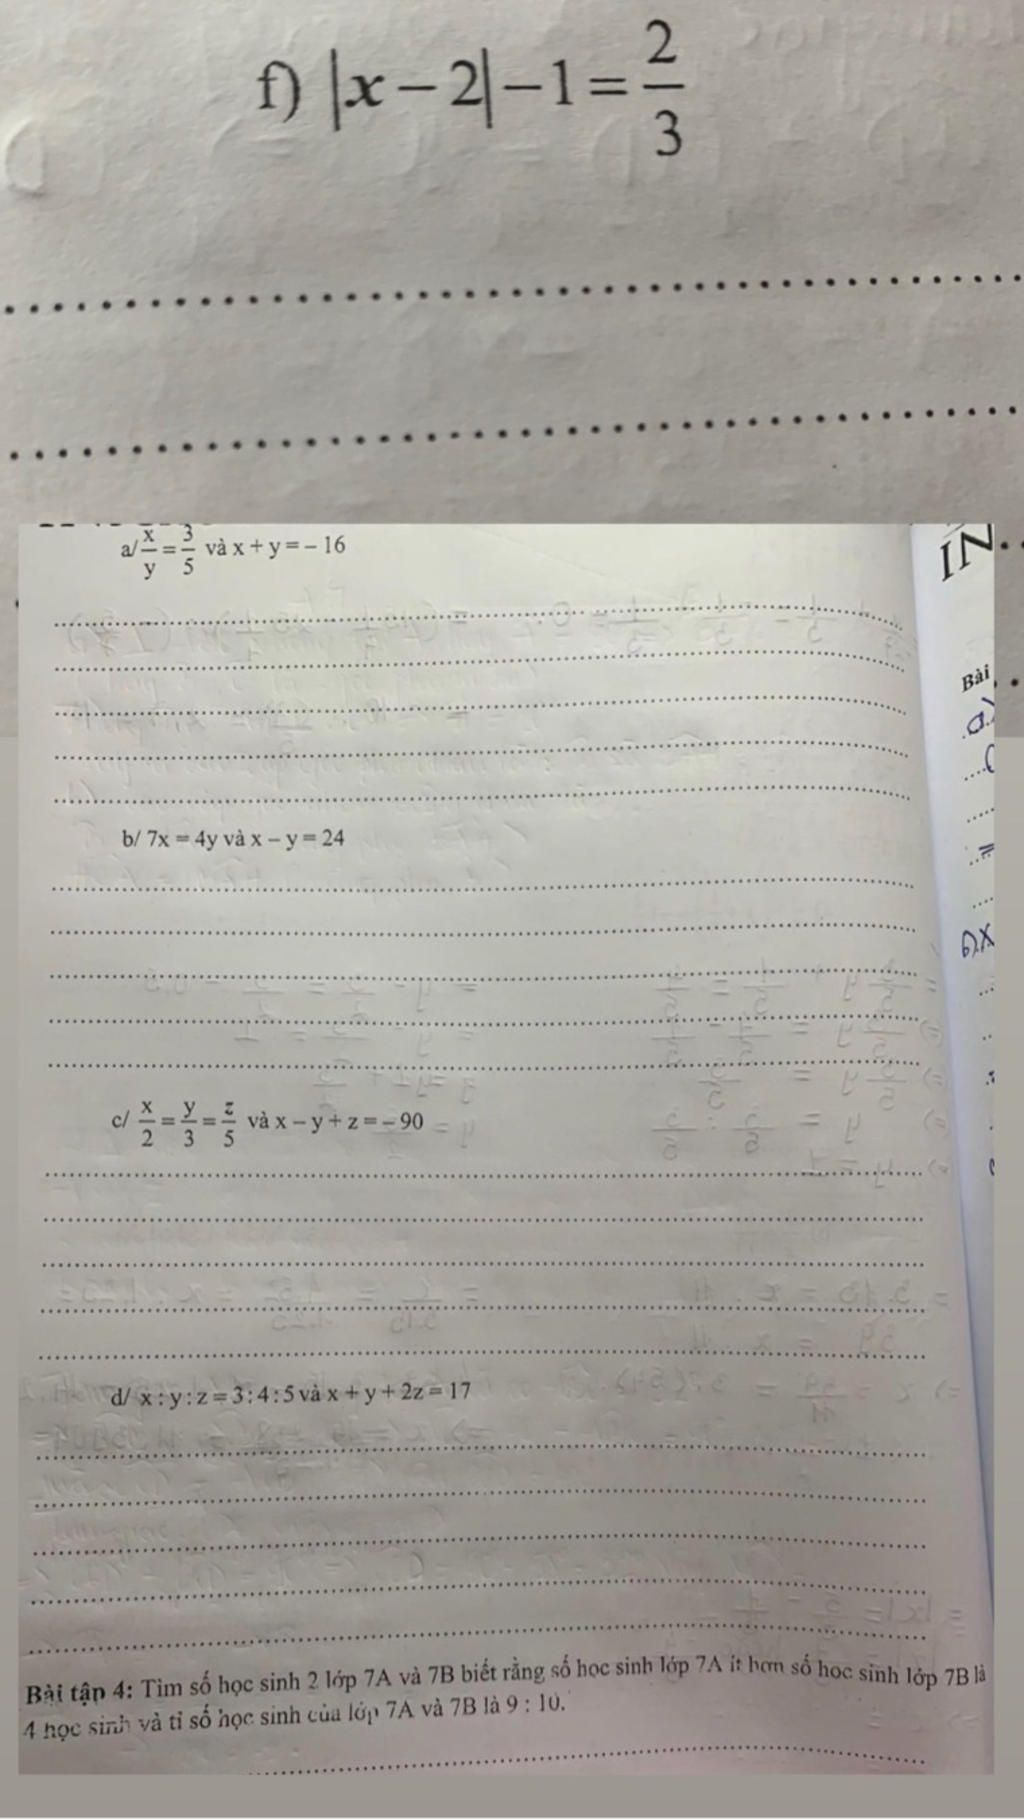 f) |x − 2| − 1 = 2/3
a/ x/y = 3/5 và x + y = – 16
IN
Bài
b/ 7x = 4y và x – y = 24
c/ x/2 = y/3 = z/5 và x – y + z = – 90
d/ x : y : z = 3 : 4 : 5 và x + y + 2z = 17
Bài tập 4: Tìm số học sinh 2 lớp 7A và 7B biết rằng số học sinh lớp 7A ít hơn số học sinh lớp 7B là
4 học sinh và tỉ số học sinh của lớp 7A và 7B là 9 : 10.